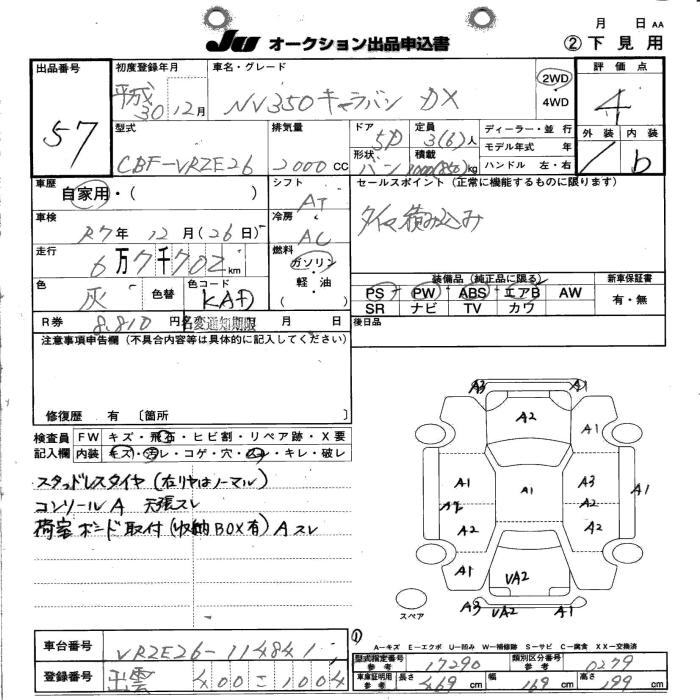 月 日 AA
JU オークション出品申込書 ② 下見用
出品番号 57
初度登録年月 平成30 12月
車名・グレード NV350キャラバン DX
2WD ・ 4WD
評価点 4
外装 内装 b
型式 CBF-VRZE26
排気量 2000 CC
ドア 5D
形状 バン
定員 3(6)人
積載 1000(850)kg
ディーラー・並行
モデル年式 年
ハンドル 左・右
車歴 自家用・( )
シフト AT
セールスポイント (正常に機能するものに限ります)
タイヤ積み込み
車検 R7年 12月(26日)
冷房 AC
走行 6万7千702km
燃料 ガソリン 軽・油 ( )
色 灰 色替 色コード KAD
装備品(純正品に限る) 新車保証書
PS PW ABS エアB AW 有・無
SR ナビ TV カワ
R券 8,810円 名変通知期限 月 日 後日品
注意事項申告欄(不具合内容等は具体的に記入してください)
修復歴 有 〔箇所 〕
検査員記入欄 FW キズ・飛石・ヒビ割・リペア跡・X要
内装 キズ・汚レ・コゲ・穴・スレ・キレ・破レ
スタッドレスタイヤ(右リヤはノーマル)
コンソールA 天張スレ
荷室ボード取付(収納BOX有)Aスレ
A3 A1
A2
A1
A1 A1 A3
A2 A2 A1
A2 A2
A1 VA2
A3 VA2 A1
スペア
①
A-キズ E-エクボ U-凹み W-補修跡 S-サビ C-腐食 XX-交換済
車台番号 VRZE26-114841
型式指定番号 参考 17290 類別区分番号 参考 0279
登録番号 出雲 400こ1004
車庫証明用 参考 長さ 469cm 幅 169cm 高さ 199cm